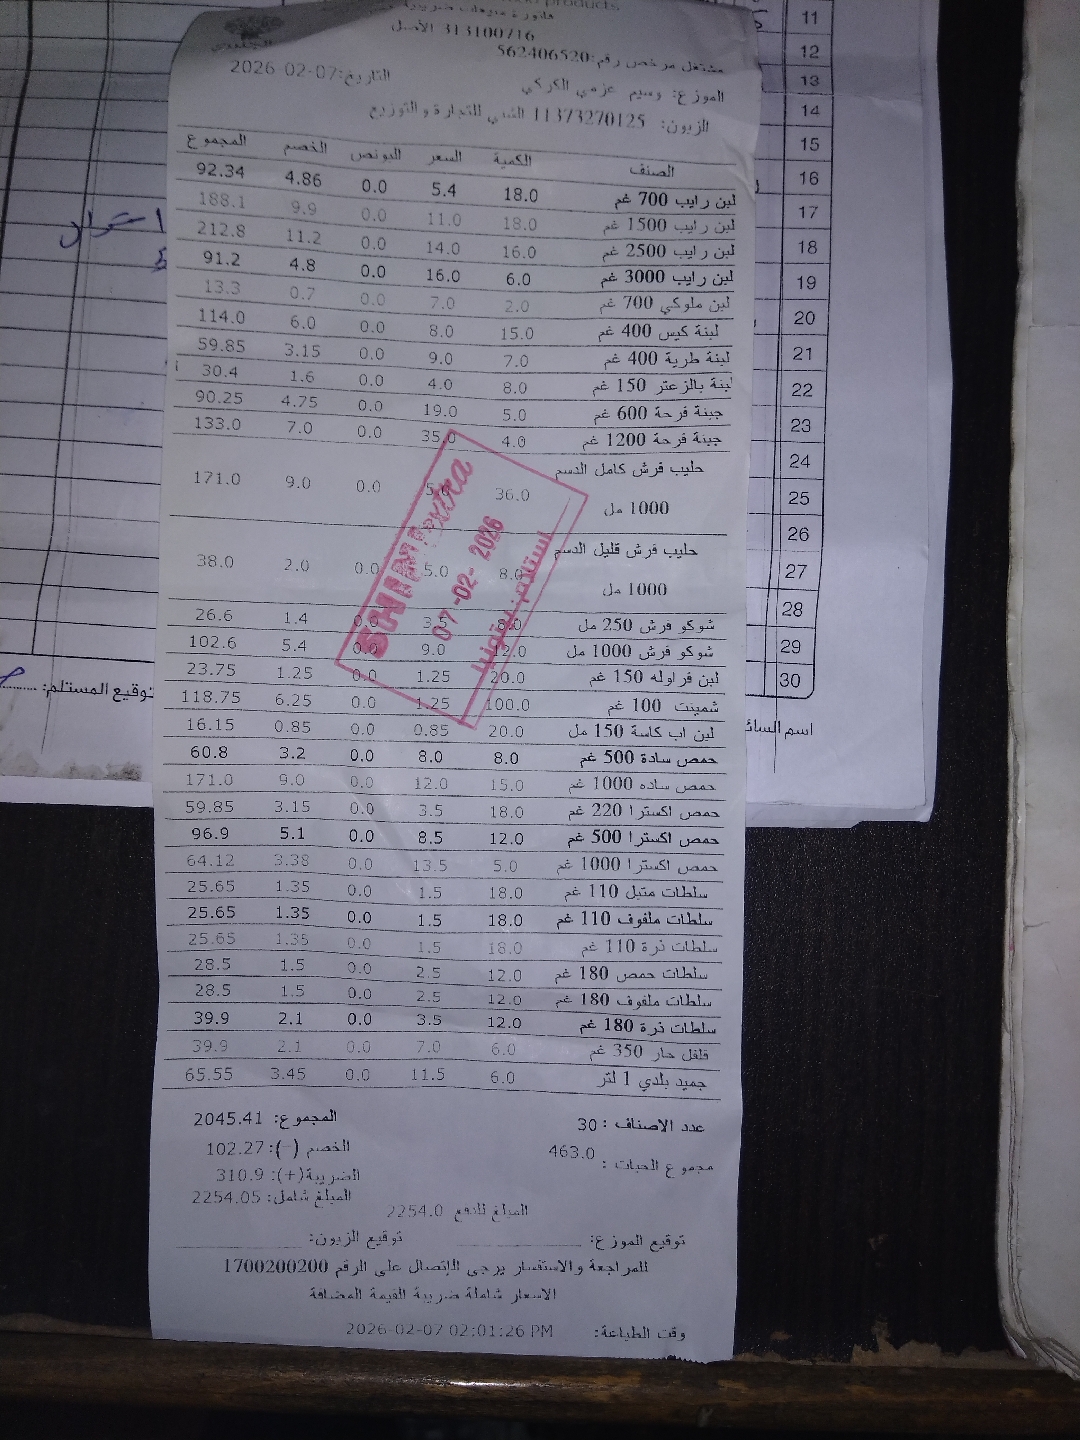 products
فاتورة مبيعات ضريبية
313100716 الأصل
مشتغل مرخص رقم:562406520
التاريخ:2026-02-07
الموزع: وسيم عزمي الكركي
الزبون: 11373270125 الشني للتجارة والتوزيع
الصنف الكمية السعر البونص الخصم المجموع
لبن رايب 700 غم 18.0 5.4 0.0 4.86 92.34
لبن رايب 1500 غم 18.0 11.0 0.0 9.9 188.1
لبن رايب 2500 غم 16.0 14.0 0.0 11.2 212.8
لبن رايب 3000 غم 6.0 16.0 0.0 4.8 91.2
لبن ملوكي 700 غم 2.0 7.0 0.0 0.7 13.3
لبنة كيس 400 غم 15.0 8.0 0.0 6.0 114.0
لبنة طرية 400 غم 7.0 9.0 0.0 3.15 59.85
لبنة بالزعتر 150 غم 8.0 4.0 0.0 1.6 30.4
جبنة فرحة 600 غم 5.0 19.0 0.0 4.75 90.25
جبنة فرحة 1200 غم 4.0 35.0 0.0 7.0 133.0
حليب فرش كامل الدسم
1000 مل 36.0 5.0 0.0 9.0 171.0
حليب فرش قليل الدسم
1000 مل 8.0 5.0 0.0 2.0 38.0
شوكو فرش 250 مل 8.0 3.5 0.0 1.4 26.6
شوكو فرش 1000 مل 12.0 9.0 0.0 5.4 102.6
لبن فراوله 150 غم 20.0 1.25 0.0 1.25 23.75
شمينت 100 غم 100.0 1.25 0.0 6.25 118.75
لبن اب كاسة 150 مل 20.0 0.85 0.0 0.85 16.15
حمص سادة 500 غم 8.0 8.0 0.0 3.2 60.8
حمص ساده 1000 غم 15.0 12.0 0.0 9.0 171.0
حمص اكسترا 220 غم 18.0 3.5 0.0 3.15 59.85
حمص اكسترا 500 غم 12.0 8.5 0.0 5.1 96.9
حمص اكسترا 1000 غم 5.0 13.5 0.0 3.38 64.12
سلطات متبل 110 غم 18.0 1.5 0.0 1.35 25.65
سلطات ملفوف 110 غم 18.0 1.5 0.0 1.35 25.65
سلطات ذرة 110 غم 18.0 1.5 0.0 1.35 25.65
سلطات حمص 180 غم 12.0 2.5 0.0 1.5 28.5
سلطات ملفوف 180 غم 12.0 2.5 0.0 1.5 28.5
سلطات ذرة 180 غم 12.0 3.5 0.0 2.1 39.9
فلفل حار 350 غم 6.0 7.0 0.0 2.1 39.9
جميد بلدي 1 لتر 6.0 11.5 0.0 3.45 65.55
عدد الاصناف : 30 المجموع: 2045.41
مجموع الحبات : 463.0 الخصم (-): 102.27
الضريبة(+): 310.9
المبلغ شامل: 2254.05
المبلغ للدفع 2254.0
توقيع الموزع: توقيع الزبون:
للمراجعة والاستفسار يرجى الإتصال على الرقم 1700200200
الاسعار شاملة ضريبة القيمة المضافة
وقت الطباعة: 2026-02-07 02:01:26 PM
extra
07-02-2026
11
12
13
14
15
16
17
18
19
20
21
22
23
24
25
26
27
28
29
30
توقيع المستلم:
اسم السائ